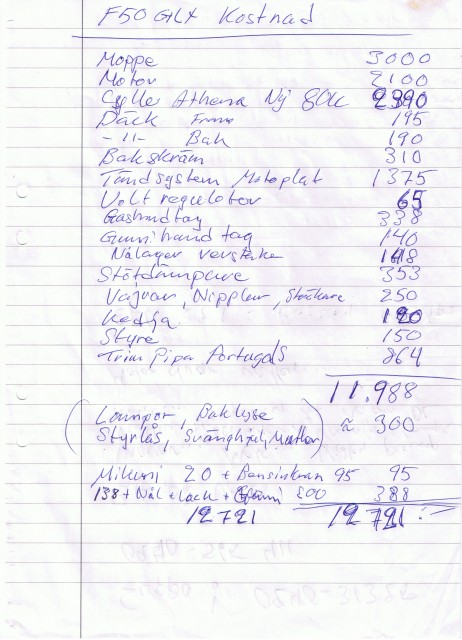 F50 GLX Kostnad
Moppe 3000
Motor 2100
Cylle Athena Ny 80cc 2390
Däck Fram 195
-11- Bak 190
Bakskärm 310
Tändsystem Motoplat 1375
Volt regulator 65
Gashandtag 338
Gummihandtag 140
Nålager vevstake 148
Stötdämpare 353
Vajrar, Nipplar, Stockare 250
Kedja 120
Styre 150
Trim Pipa Portugals 864
11.988
Lampor, Baklyse
Styrlås, Svänghjul, Muttrar ≈ 300
Mikuni 20 + Bensinkran 95 95
138 + Nål + Lack + 200 388
12721 12721:-